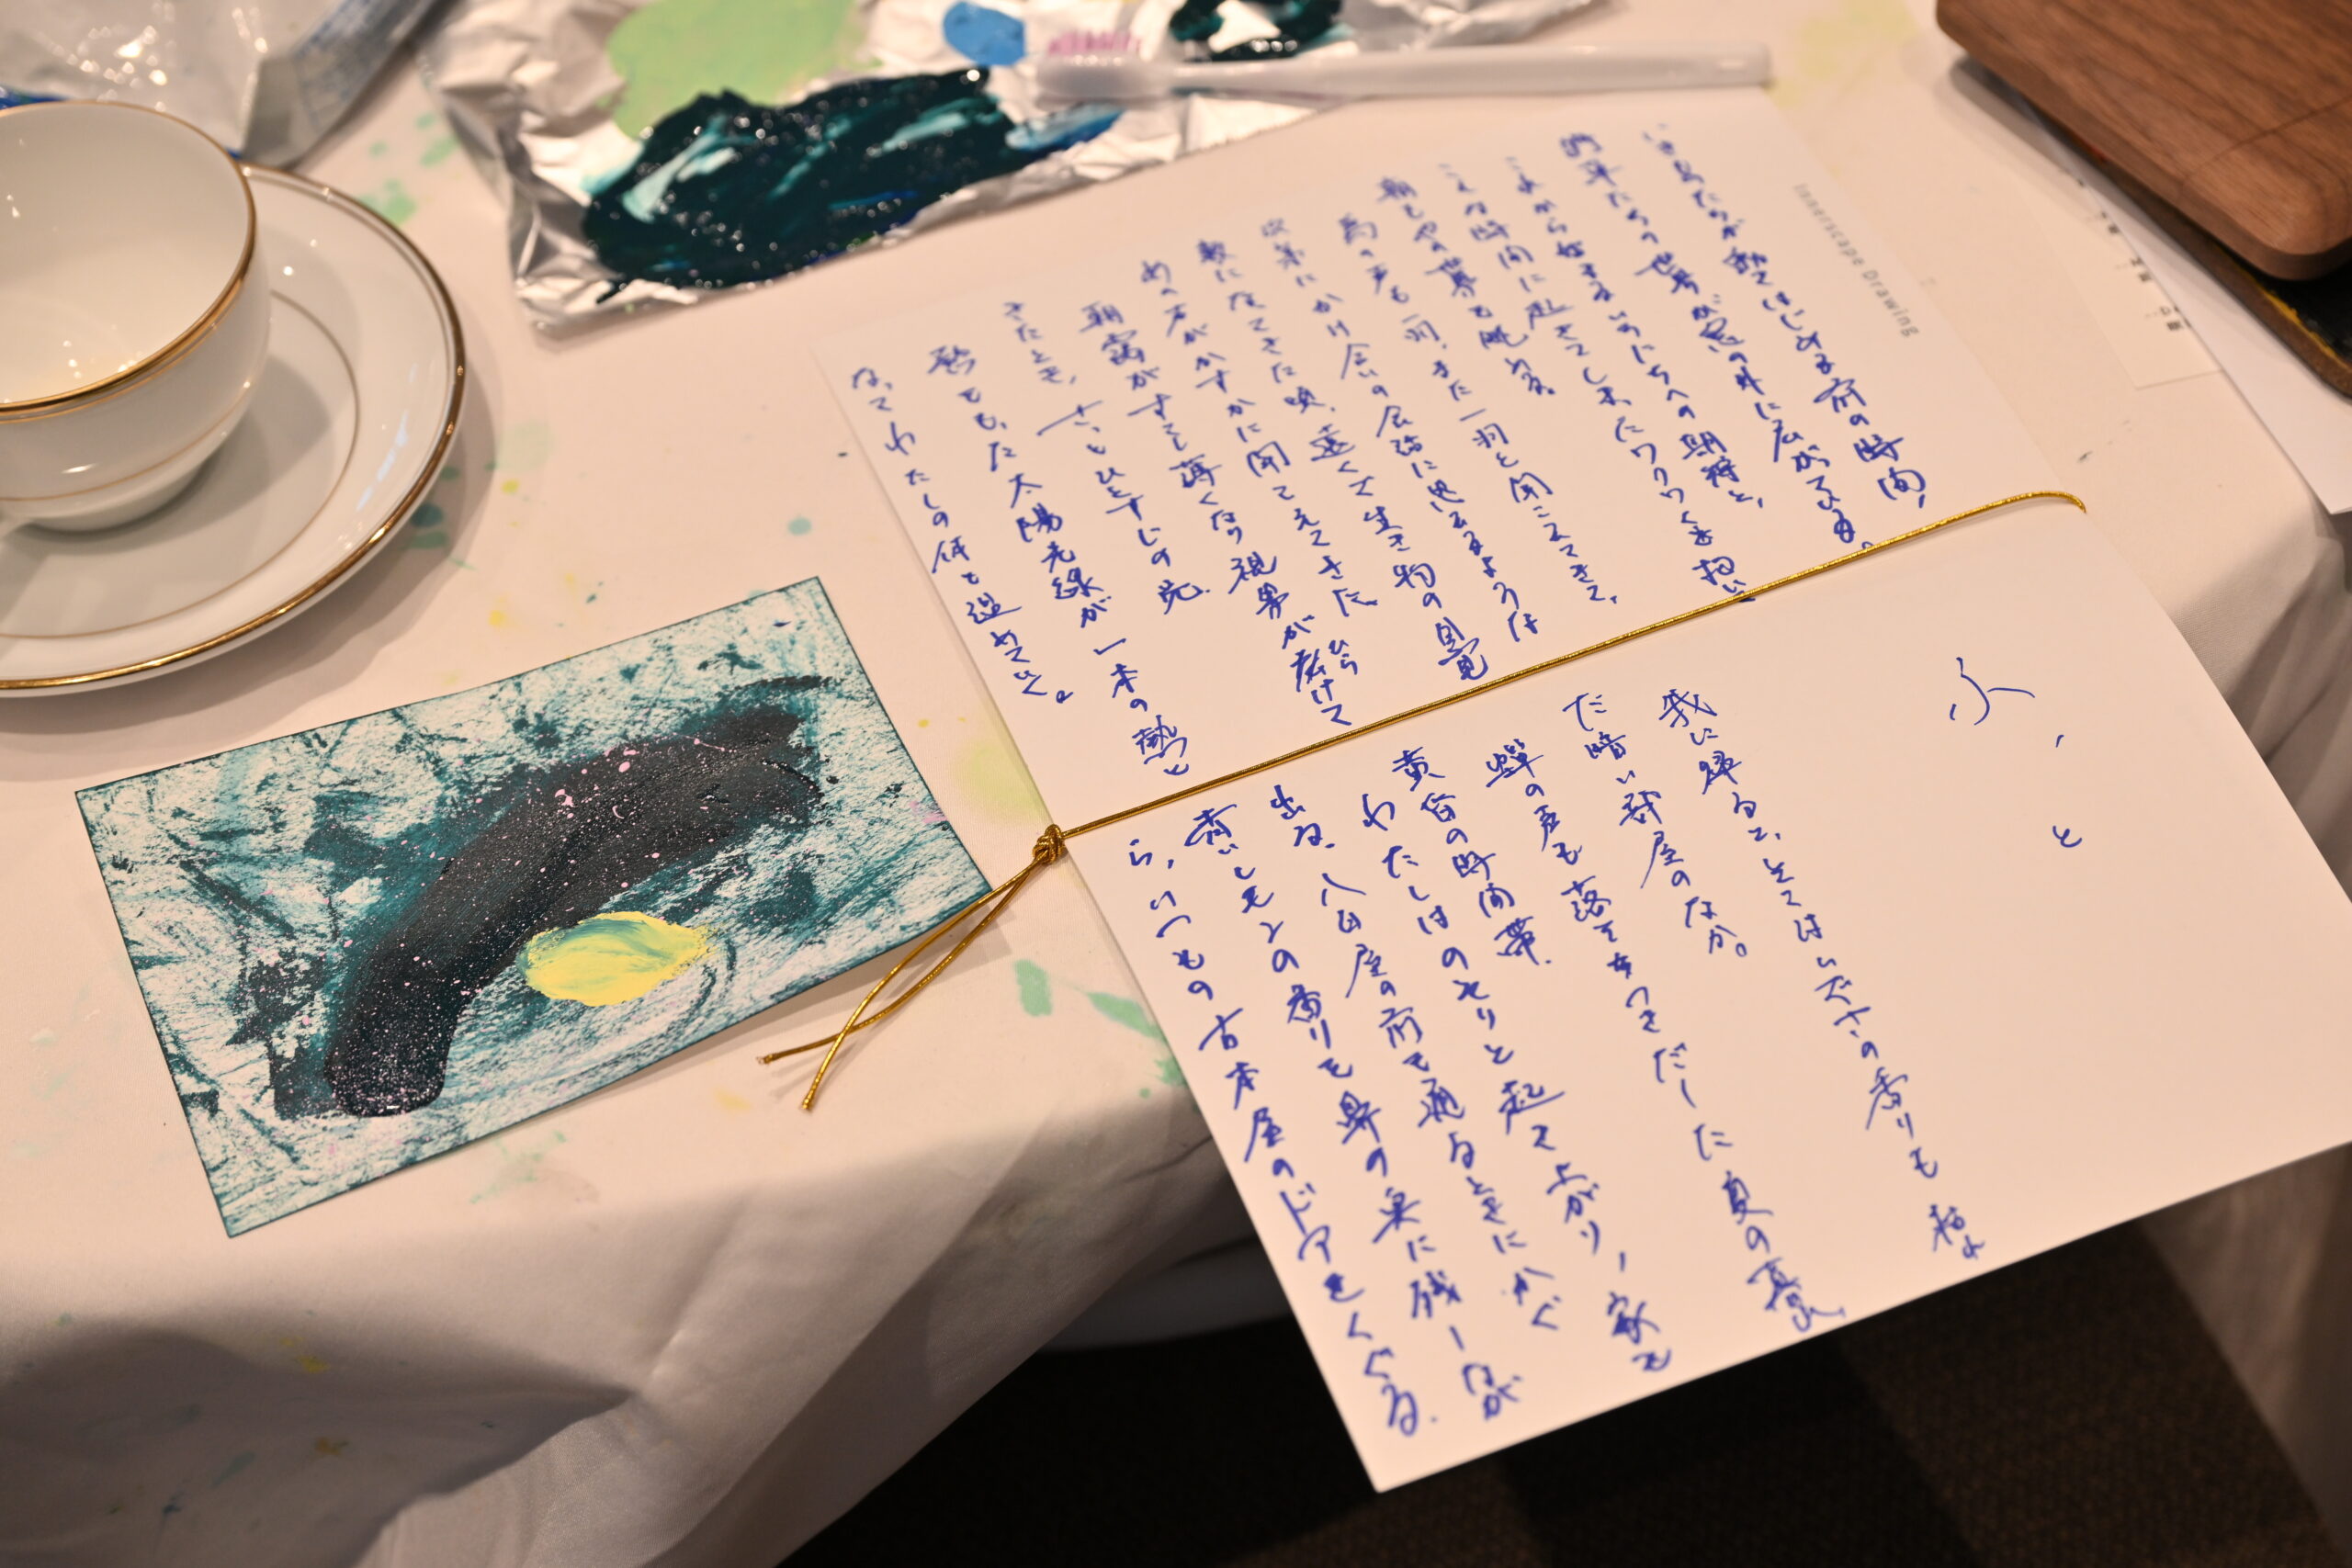 Innerscape Drawing
いきものたちが動きはじめる前の時間、
の世界が窓の外に広がっている。
これから始まるいのちへの期待と、
こんな時間に起きてしまったワクワクを抱いて
朝もやの世界を眺める。
鳥の声も一羽、また一羽と聞こえてきて、
次第にかけ合いの会話に思えるような
数になってきた頃、遠くで生き物の目覚
めの声がかすかに聞こえてきた。
朝露がすこし薄くなり視界が広(ひら)けて
きたとき、さっとひとすじの光。
熱をもった太陽光線が一本の熱と
なってわたしの体を温めていく。
ふ、と
我に帰ると、とくてはいだ の香りも
だ暗い部屋のなか。
蝉の声も落ちつきだした夏の
黄昏の時間帯。
わたしはのそりと起き上がり、家を
出る。八百屋の前を通るときにかぐ
レモンの香りを鼻の奥に残しなが
ら、いつもの古本屋のドアをくぐる。